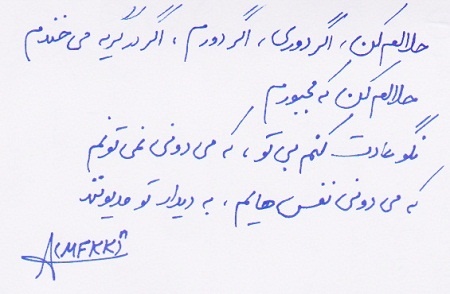 حلالم کن، اگر دوری، اگر دورم، اگر در گریه می خندم
حلالم کن که مجبورم
نگو عادت کنم بی تو، که می دونی نمی تونم
که می دونی نفس هایم، به دیدار تو مدیونند
A(MFKK)ⁿ